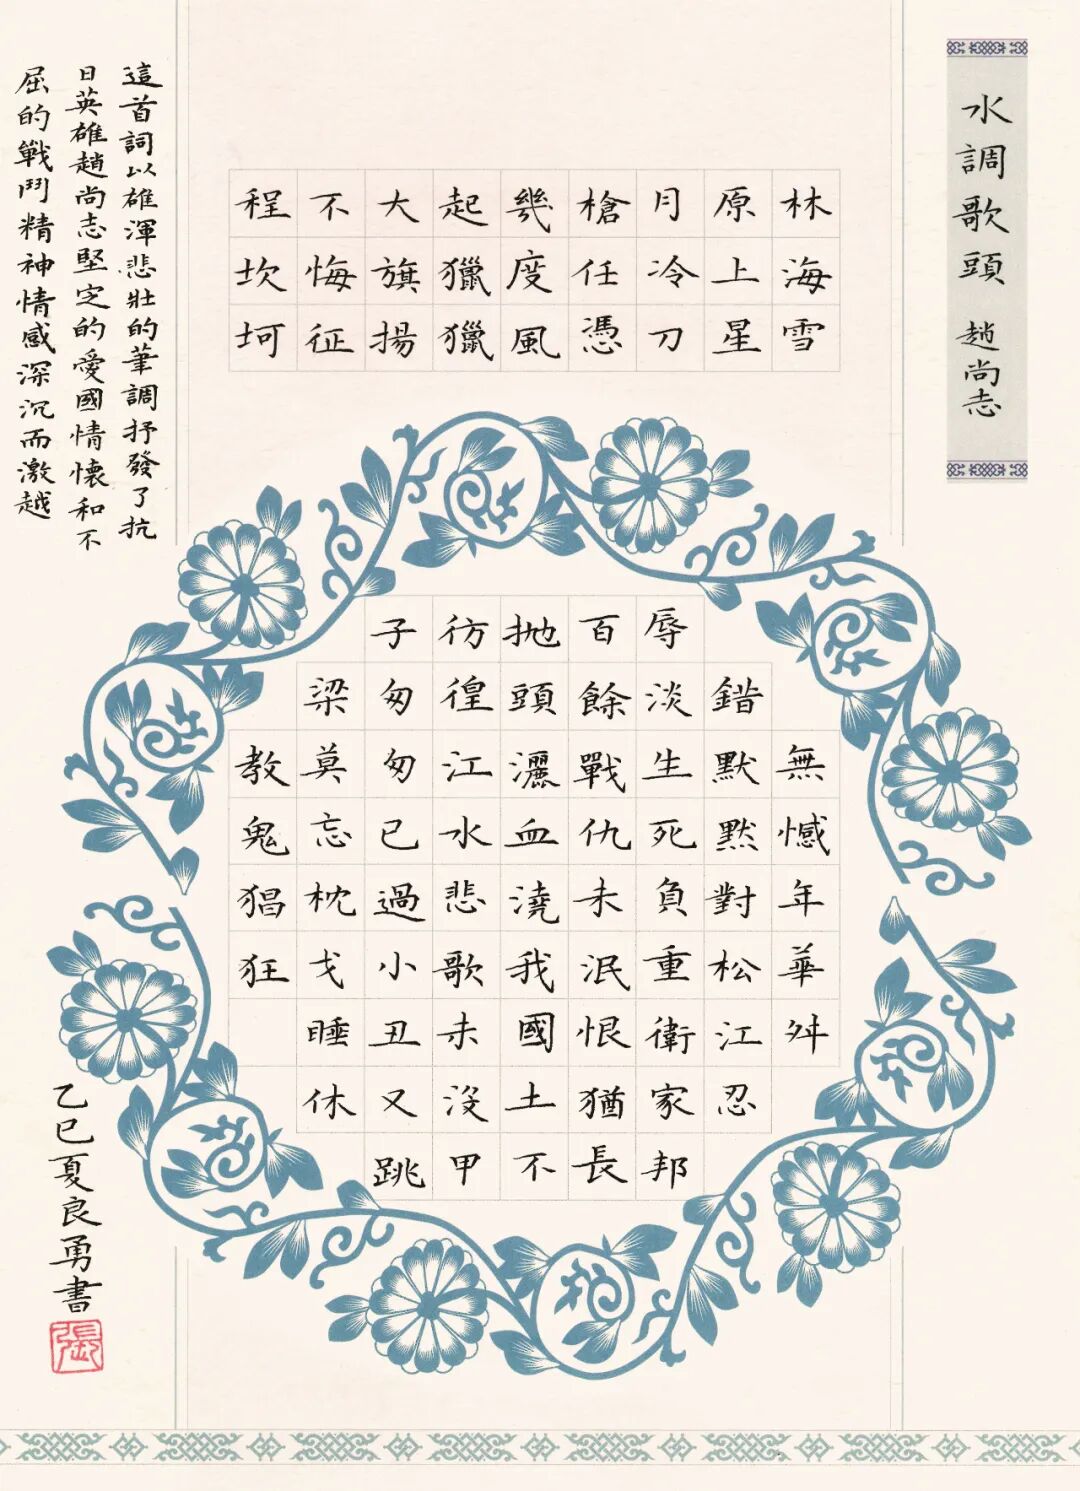 水調歌頭 趙尚志
林海雪
原上星
月冷刀
槍任憑
幾度風
起獵獵
大旗揚
不悔征
程坎坷
無憾年華舛
錯默默對松江忍
辱淡生死負重衛家邦
百餘戰仇未泯恨猶長
拋頭灑血澆我國土不
彷徨江水悲歌未沒甲
子匆匆已過小丑又跳
梁莫忘枕戈睡休
教鬼猖狂
這首詞以雄渾悲壯的筆調抒發了抗
日英雄趙尚志堅定的愛國情懷和不
屈的戰鬥精神情感深沉而激越
乙巳夏良勇書
張